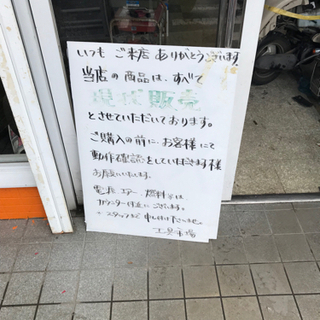 いつも ご来店 ありがとうございます。
当店の商品は、すべて
現状販売
とさせていただいております。
ご購入の前に、お客様にて
動作確認をしていただきます様
お願いいたします。
電源 エアー 燃料等は
カウンター付近にございます。
スタッフまで 申し付け下さいませ。
工具市場